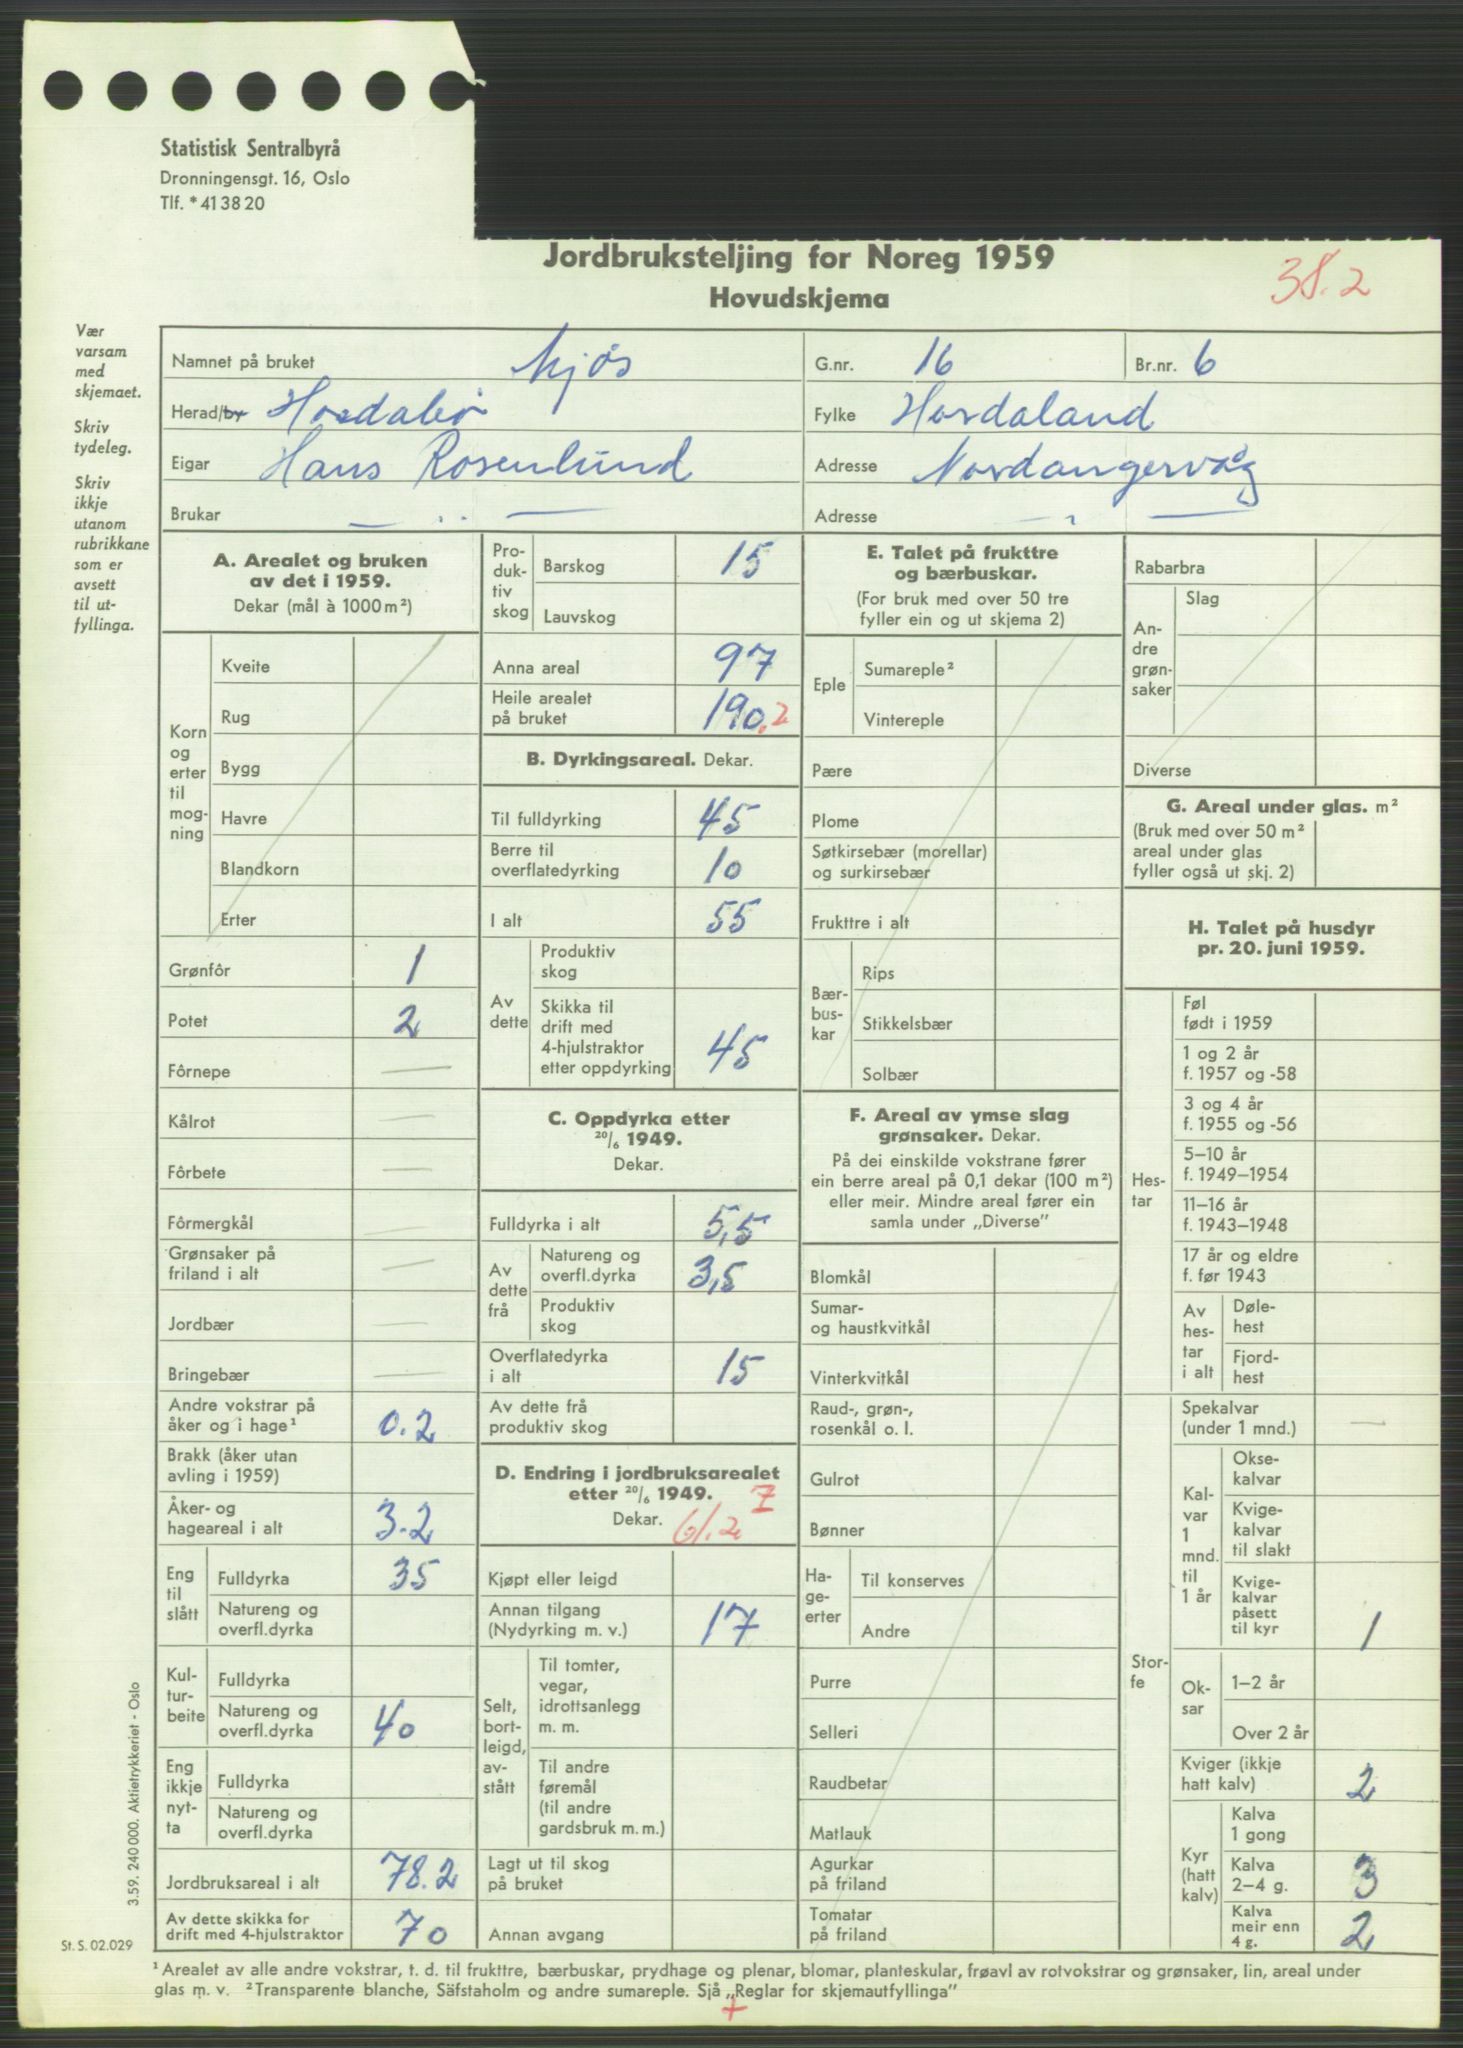 Statistisk Sentralbyrå
Dronningensgt. 16, Oslo
Tlf. *41 38 20
Jordbruksteljing for Noreg 1959
Hovudskjema
38.2
Vær
varsam
med
skjemaet.
Skriv
tydeleg.
Skriv
ikkje
utanom
rubrikkane
som er
avsett
til ut-
fyllinga.
Namnet på bruket Mjøs
G.nr. 16
Br.nr. 6
Herad/by Hordabø
Fylke Hordaland
Eigar Hans Rosenlund
Adresse Nordangervåg
Brukar — " —
Adresse — " —
A. Arealet og bruken
av det i 1959.
Dekar (mål à 1000 m²)
Korn
og
erter
til
mog-
ning
Kveite
Rug
Bygg
Havre
Blandkorn
Erter
Grønfôr 1
Potet 2
Fôrnepe —
Kålrot —
Fôrbete —
Fôrmergkål —
Grønsaker på
friland i alt —
Jordbær —
Bringebær —
Andre vokstrar på
åker og i hage¹ 0.2
Brakk (åker utan
avling i 1959)
Åker- og
hageareal i alt 3.2
Eng
til
slått
Fulldyrka 35
Natureng og
overfl.dyrka
Kul-
tur-
beite
Fulldyrka
Natureng og
overfl.dyrka 40
Eng
ikkje
nyt-
ta
Fulldyrka
Natureng og
overfl.dyrka
Jordbruksareal i alt 78.2
Av dette skikka for
drift med 4-hjulstraktor 70
Pro-
duk-
tiv
skog
Barskog 15
Lauvskog
Anna areal 97
Heile arealet
på bruket 190.2
B. Dyrkingsareal. Dekar.
Til fulldyrking 45
Berre til
overflatedyrking 10
I alt 55
Av
dette
Produktiv
skog
Skikka til
drift med
4-hjulstraktor
etter oppdyrking 45
C. Oppdyrka etter
20/6 1949.
Dekar.
Fulldyrka i alt 5,5
Av
dette
frå
Natureng og
overfl.dyrka 3,5
Produktiv
skog
Overflatedyrka
i alt 15
Av dette frå
produktiv skog
D. Endring i jordbruksarealet
etter 20/6 1949. I
Dekar. 61.2
Kjøpt eller leigd
Annan tilgang
(Nydyrking m. v.) 17
Selt,
bort-
leigd,
av-
stått
Til tomter,
vegar,
idrottsanlegg
m. m.
Til andre
føremål
(til andre
gardsbruk m. m.)
Lagt ut til skog
på bruket
Annan avgang
E. Talet på frukttre
og bærbuskar.
(For bruk med over 50 tre
fyller ein og ut skjema 2)
Eple
Sumareple²
Vintereple
Pære
Plome
Søtkirsebær (morellar)
og surkirsebær
Frukttre i alt
Bær-
bus-
kar
Rips
Stikkelsbær
Solbær
F. Areal av ymse slag
grønsaker. Dekar.
På dei einskilde vokstrane fører
ein berre areal på 0,1 dekar (100 m²)
eller meir. Mindre areal fører ein
samla under „Diverse”
Blomkål
Sumar-
og haustkvitkål
Vinterkvitkål
Raud-, grøn-,
rosenkål o. l.
Gulrot
Bønner
Ha-
ge-
erter
Til konserves
Andre
Purre
Selleri
Raudbetar
Matlauk
Agurkar
på friland
Tomatar
på friland
Rabarbra
An-
dre
grøn-
saker
Slag
Diverse
G. Areal under glas. m²
(Bruk med over 50 m²
areal under glas
fyller også ut skj. 2)
H. Talet på husdyr
pr. 20. juni 1959.
Hes-
tar
Føl
født i 1959
1 og 2 år
f. 1957 og -58
3 og 4 år
f. 1955 og -56
5–10 år
f. 1949–1954
11–16 år
f. 1943–1948
17 år og eldre
f. før 1943
Av
hes-
tar
i alt
Døle-
hest
Fjord-
hest
Stor-
fe
Spekalvar
(under 1 mnd.) —
Kal-
var
1
mnd.
til
1 år
Okse-
kalvar
Kvige-
kalvar
til slakt
Kvige-
kalvar
påsett
til kyr 1
Ok-
sar
1–2 år
Over 2 år
Kviger (ikkje
hatt kalv) 2
Kyr
(hatt
kalv)
Kalva
1 gong
Kalva
2–4 g. 3
Kalva
meir enn
4 g. 2
3.59. 240 000. Aktietrykkeriet - Oslo
St. S. 02.029
¹ Arealet av alle andre vokstrar, t. d. til frukttre, bærbuskar, prydhage og plenar, blomar, planteskular, frøavl av rotvokstrar og grønsaker, lin, areal under
glas m. v. ² Transparente blanche, Säfstaholm og andre sumareple. Sjå „Reglar for skjemautfyllinga”
+